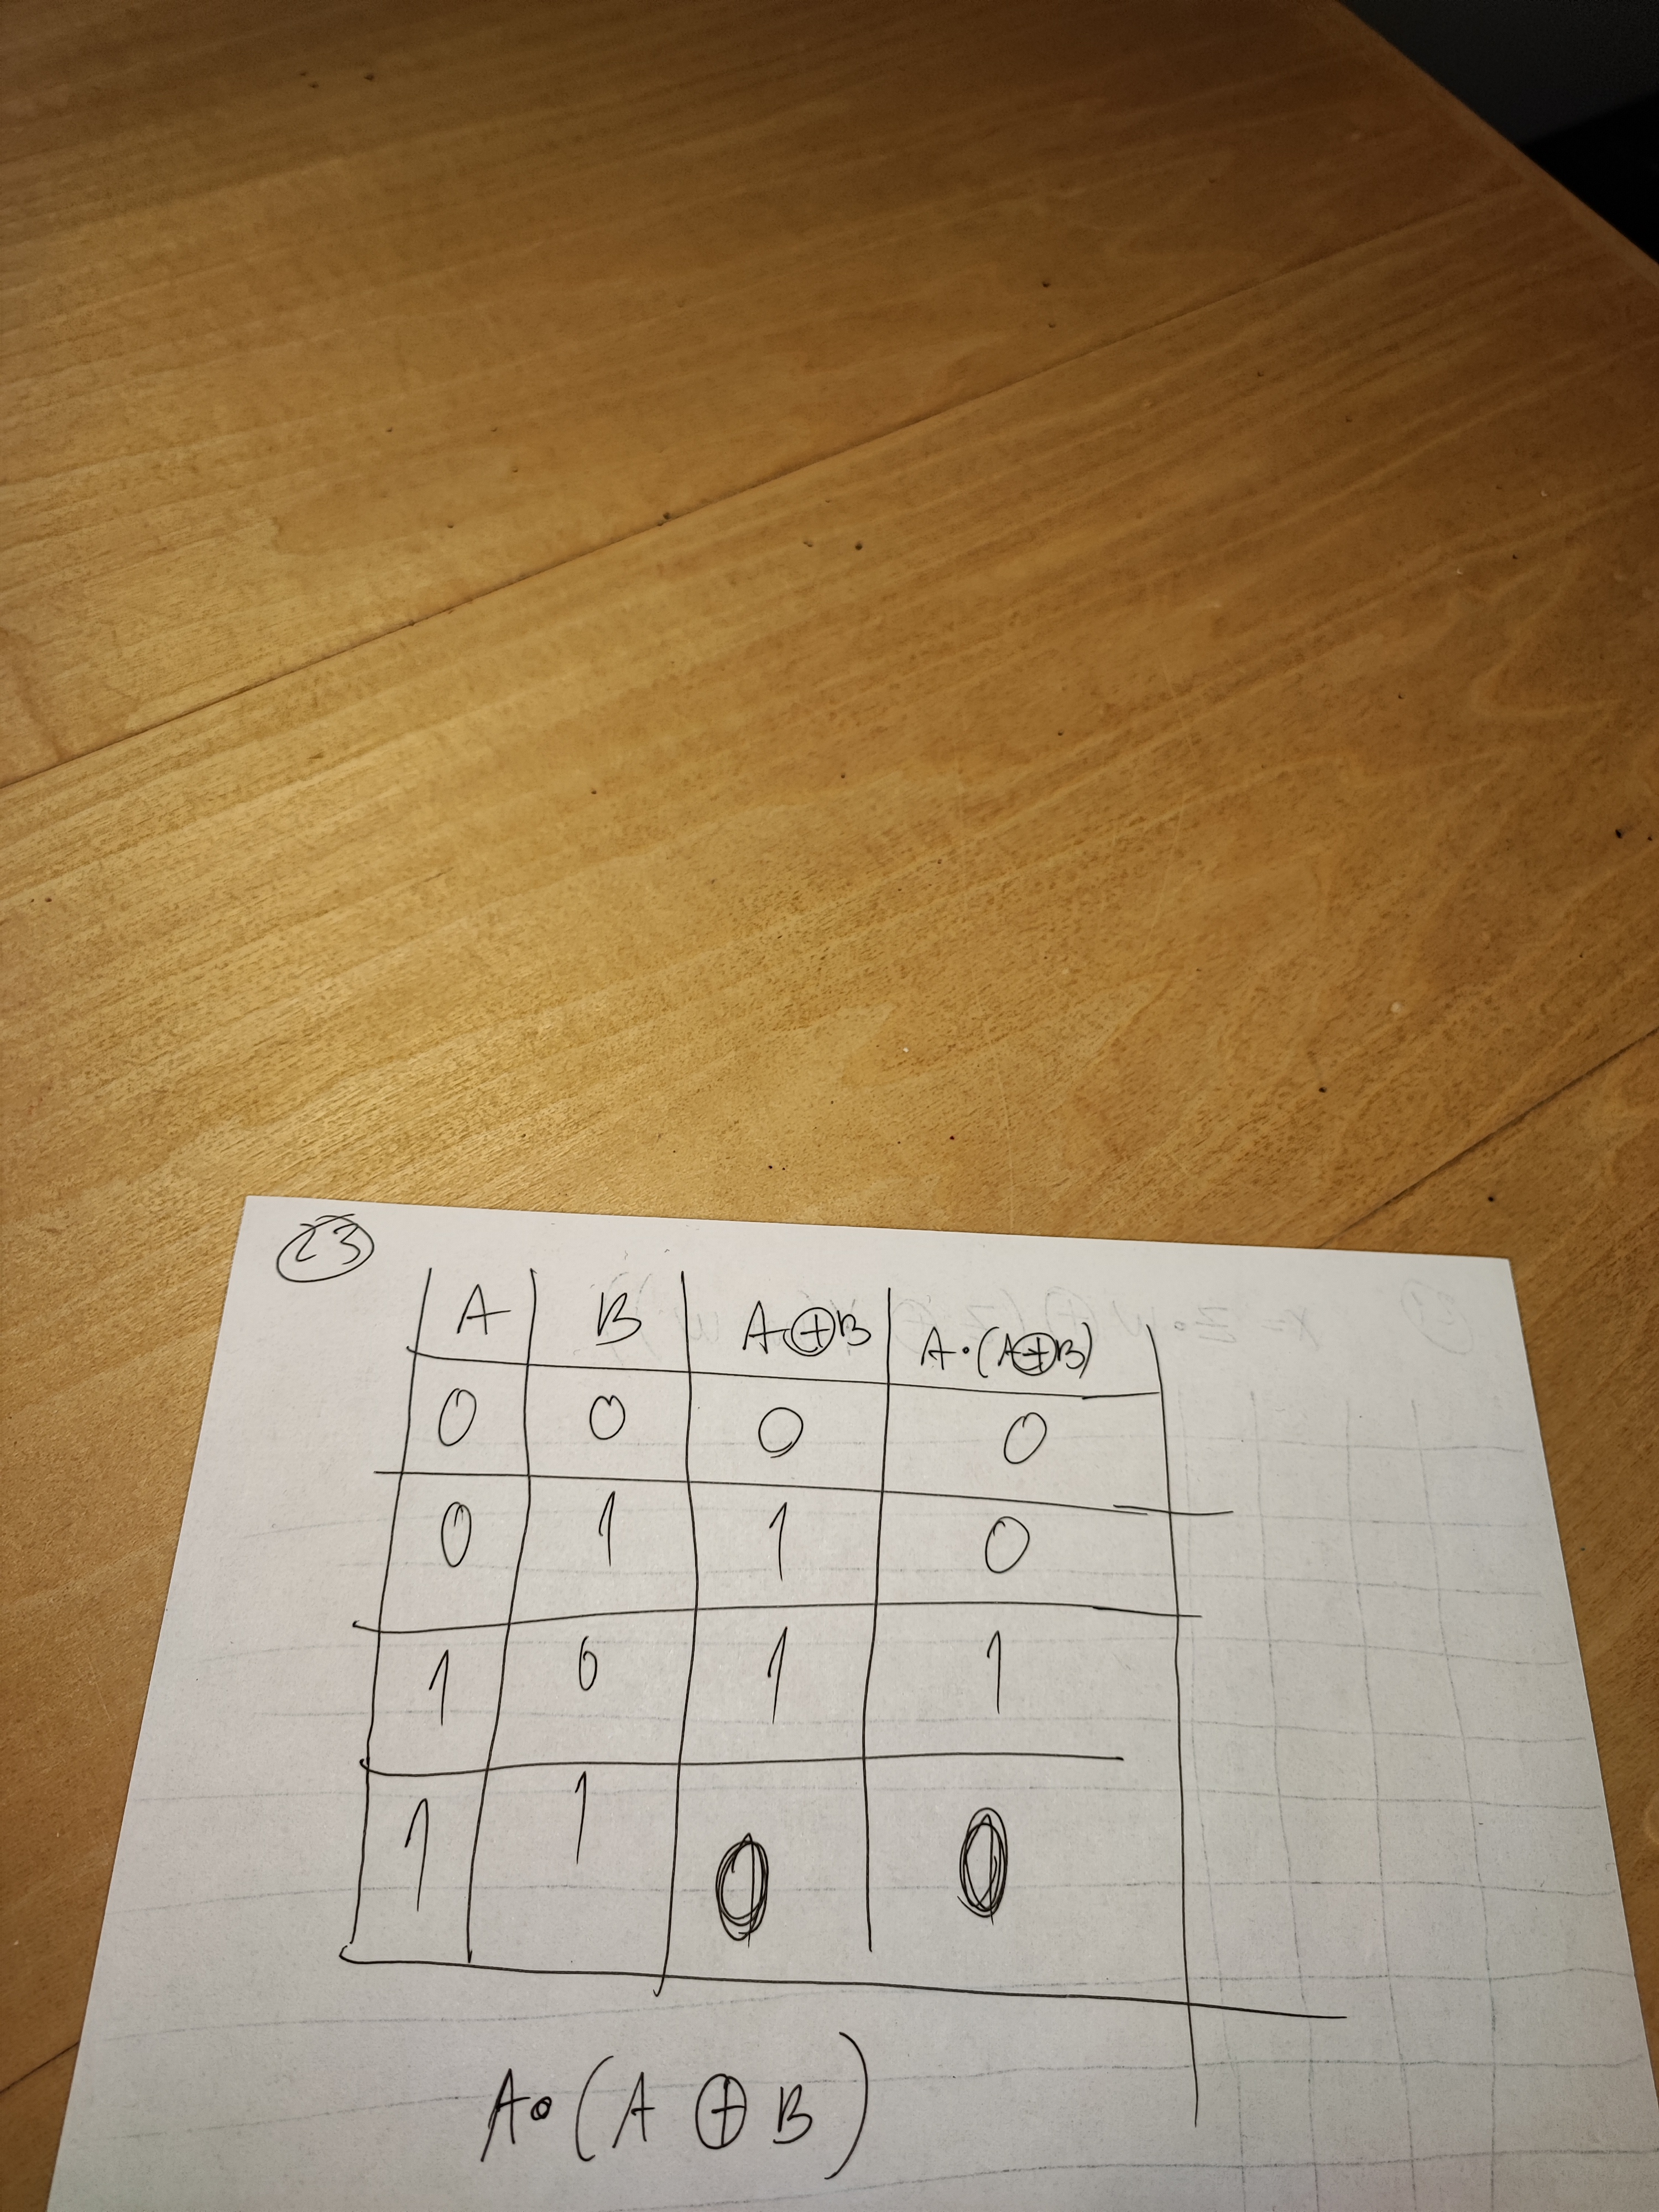 23
A B A⊕B A·(A⊕B)
0 0 0 0
0 1 1 0
1 0 1 1
1 1 0 0
A·(A ⊕ B)